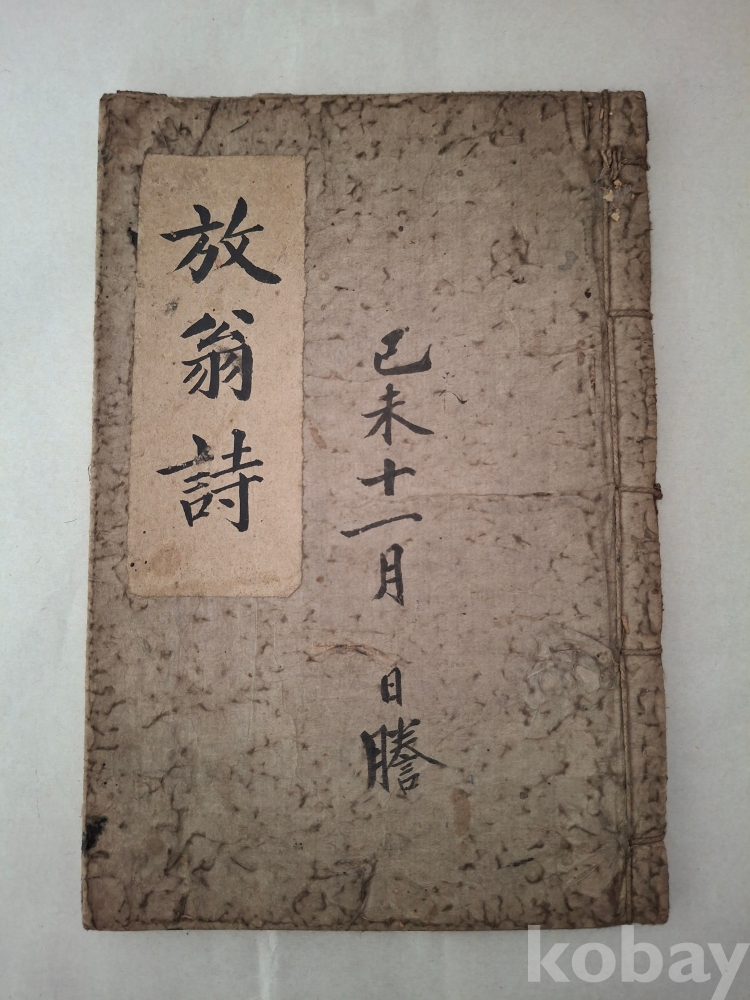 放翁詩
己未十一月 日謄
kobay